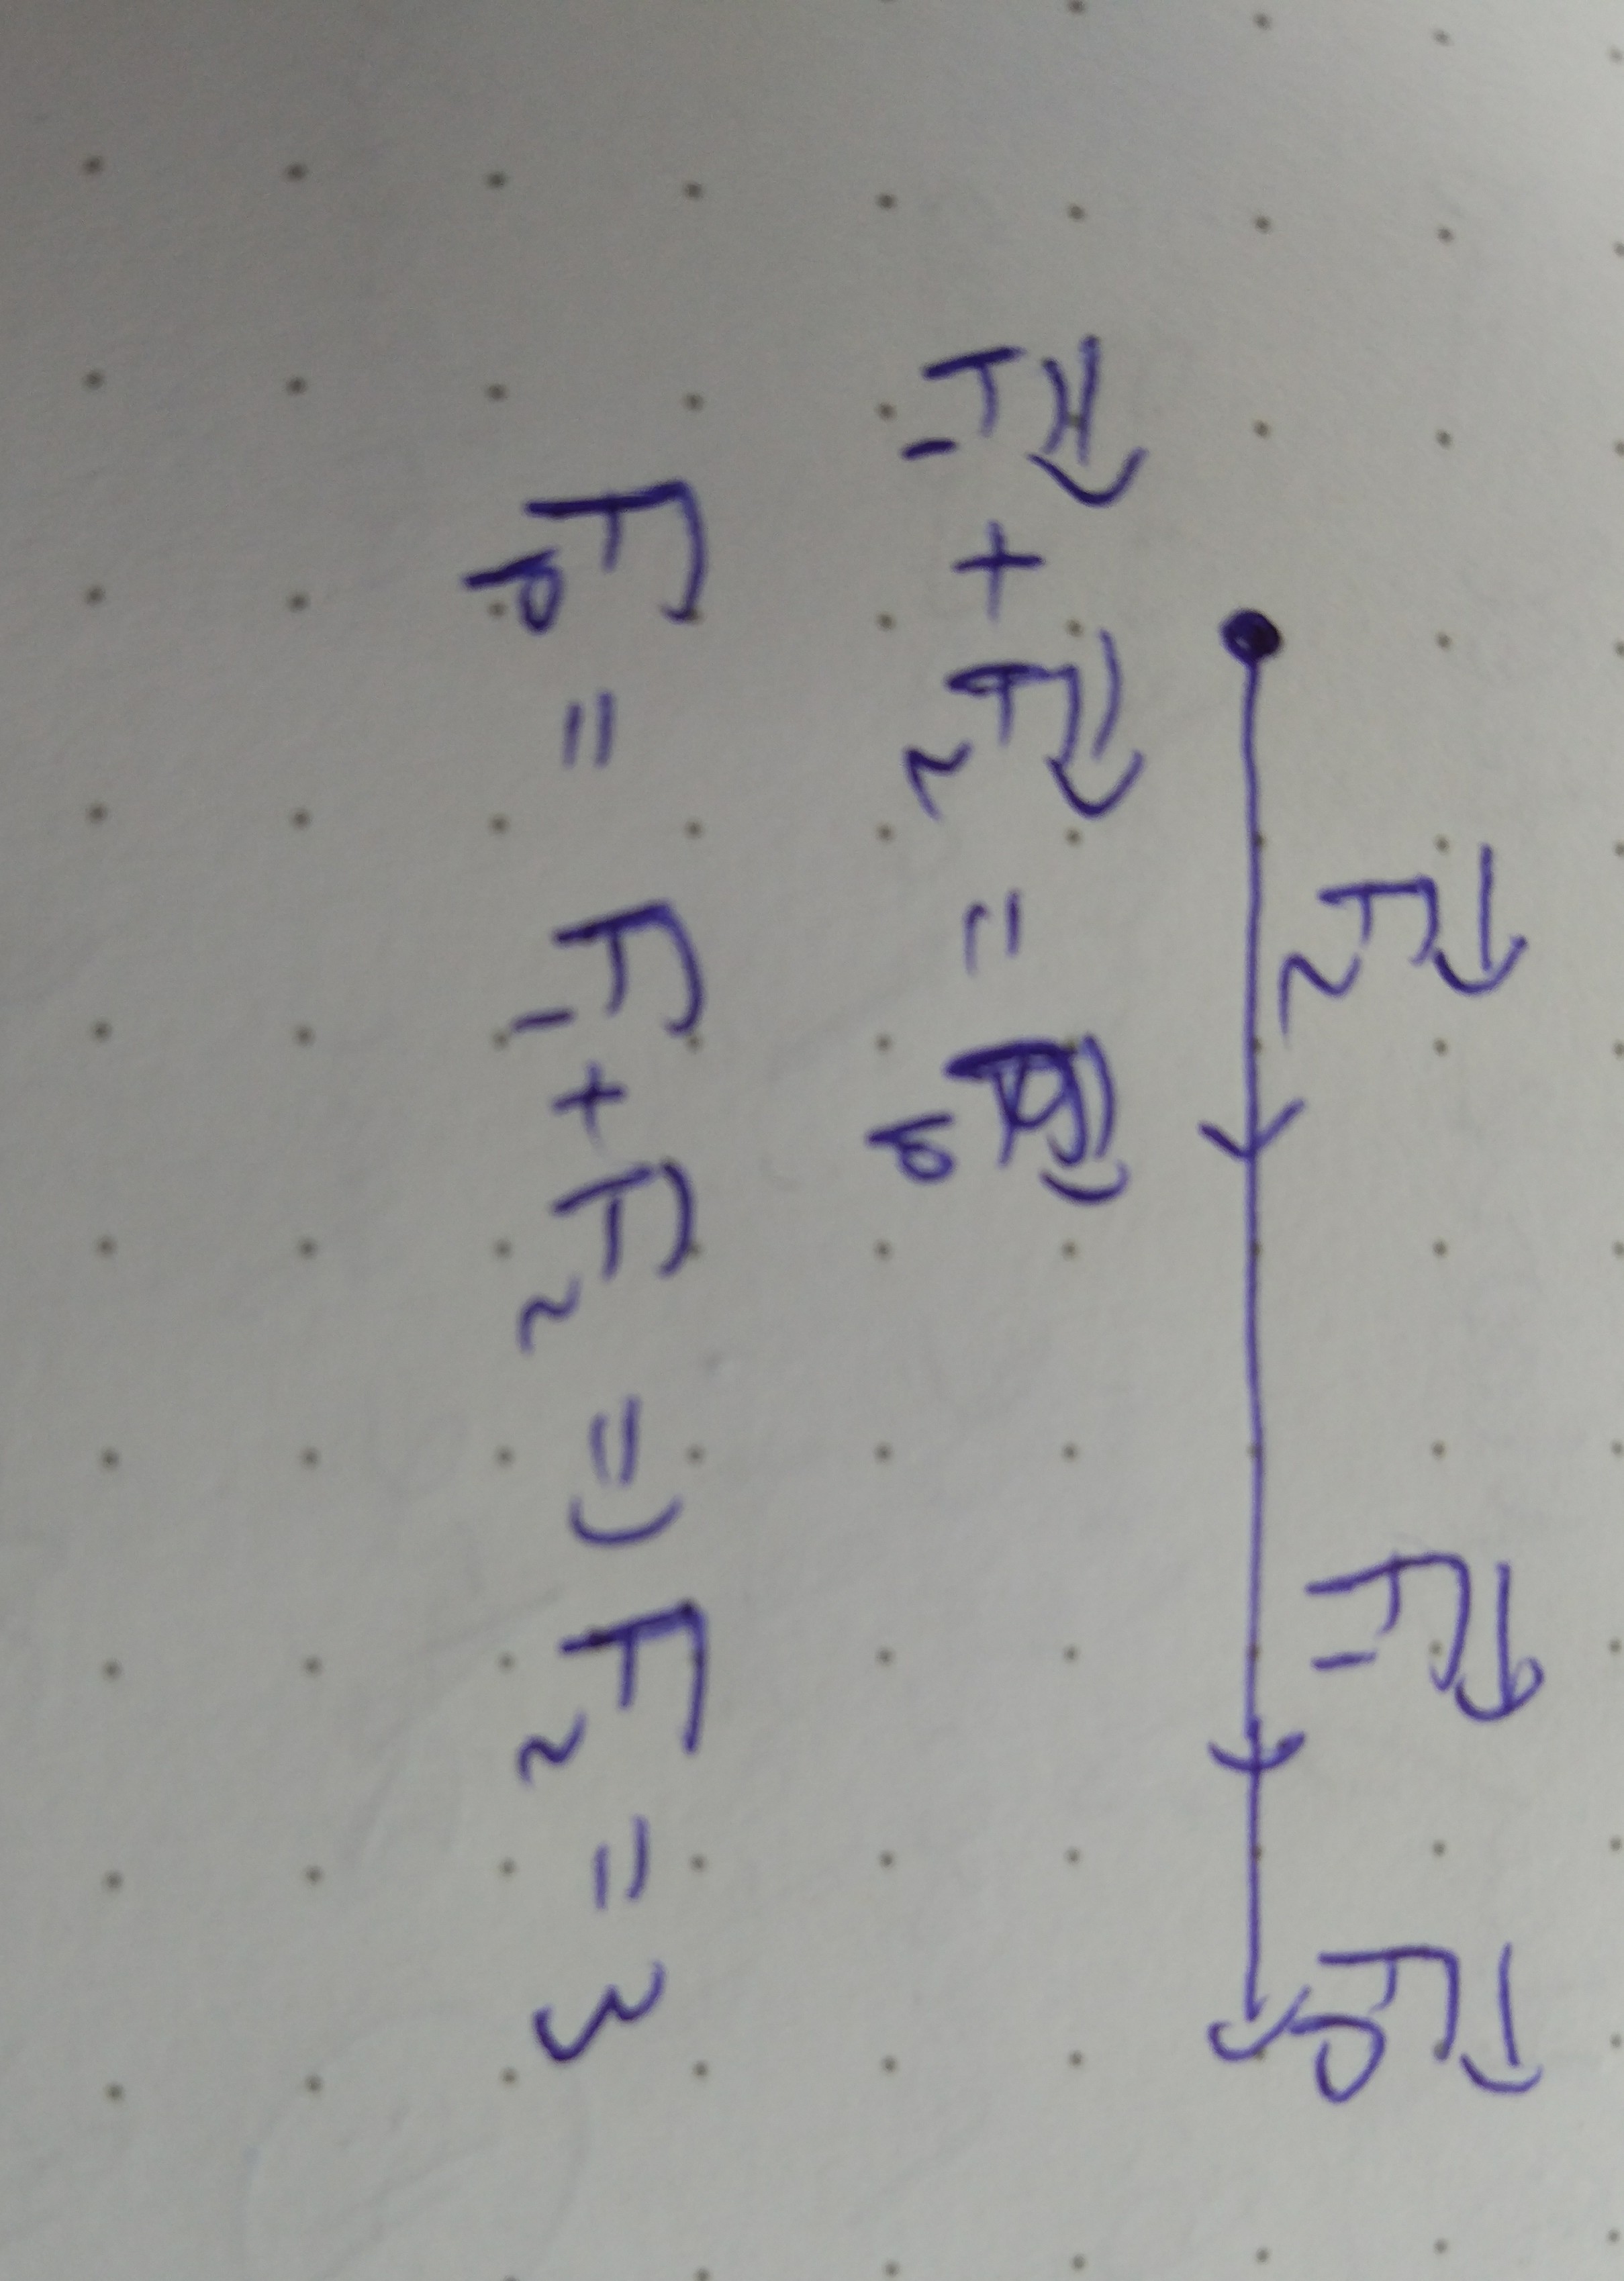 F⃗₂ F⃗₁ F⃗р
F⃗₁ + F⃗₂ = F⃗р
Fр = F₁ + F₂ => F₂ = 3